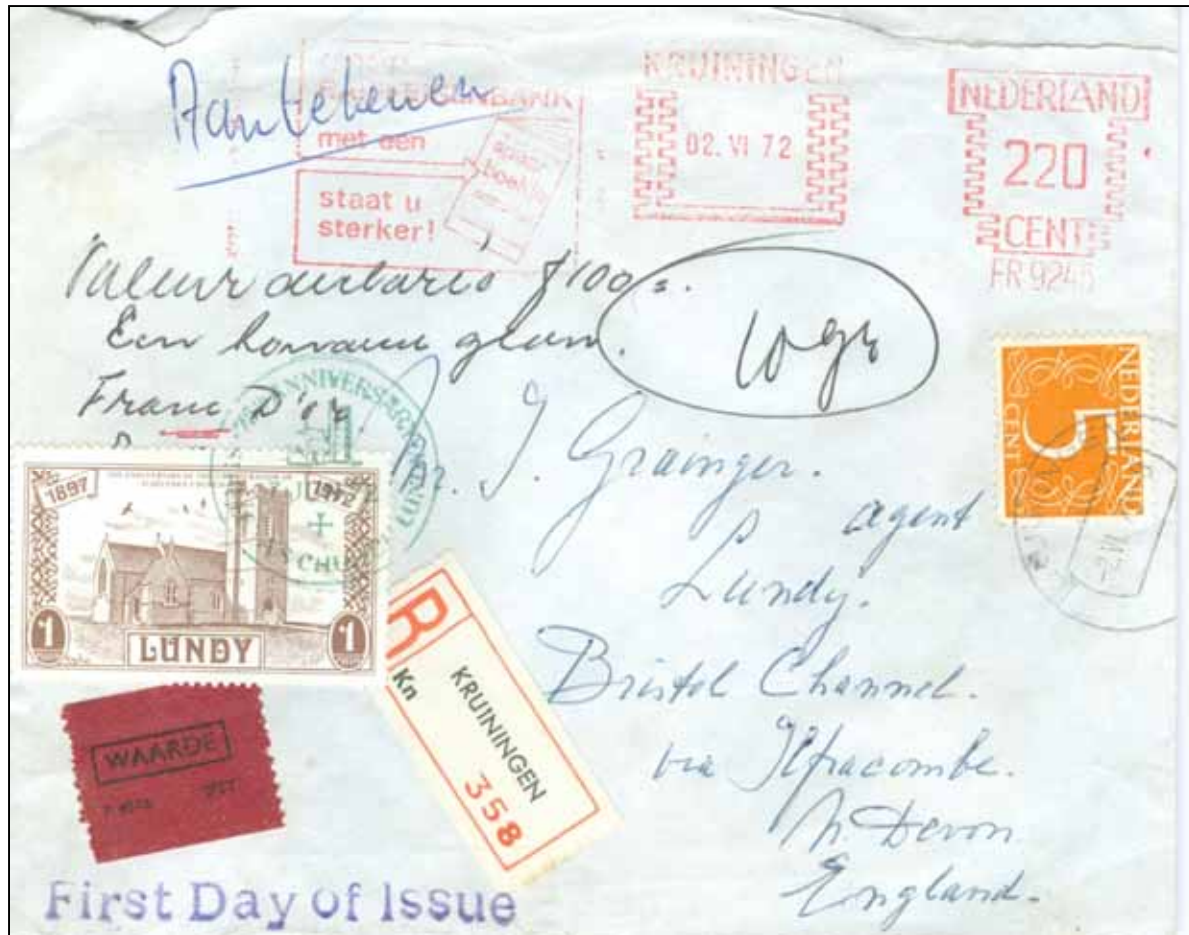 Aantekenen
BANK
met een
staat u
sterker!
spaar
boekje
KRUININGEN
02. VI 72
NEDERLAND
220
CENT
FR 9245
Valeur f100
Een
Franc D'or
10 gr
NEDERLAND
5
CENT
ANNIVERSARY
CHU
1897
1972
1
LUNDY
1
Mr. J. Grainger.
agent
Lundy.
Bristol Channel.
via Ilfracombe.
N. Devon
England.
R
Kn
KRUININGEN
358
WAARDE
First Day of Issue